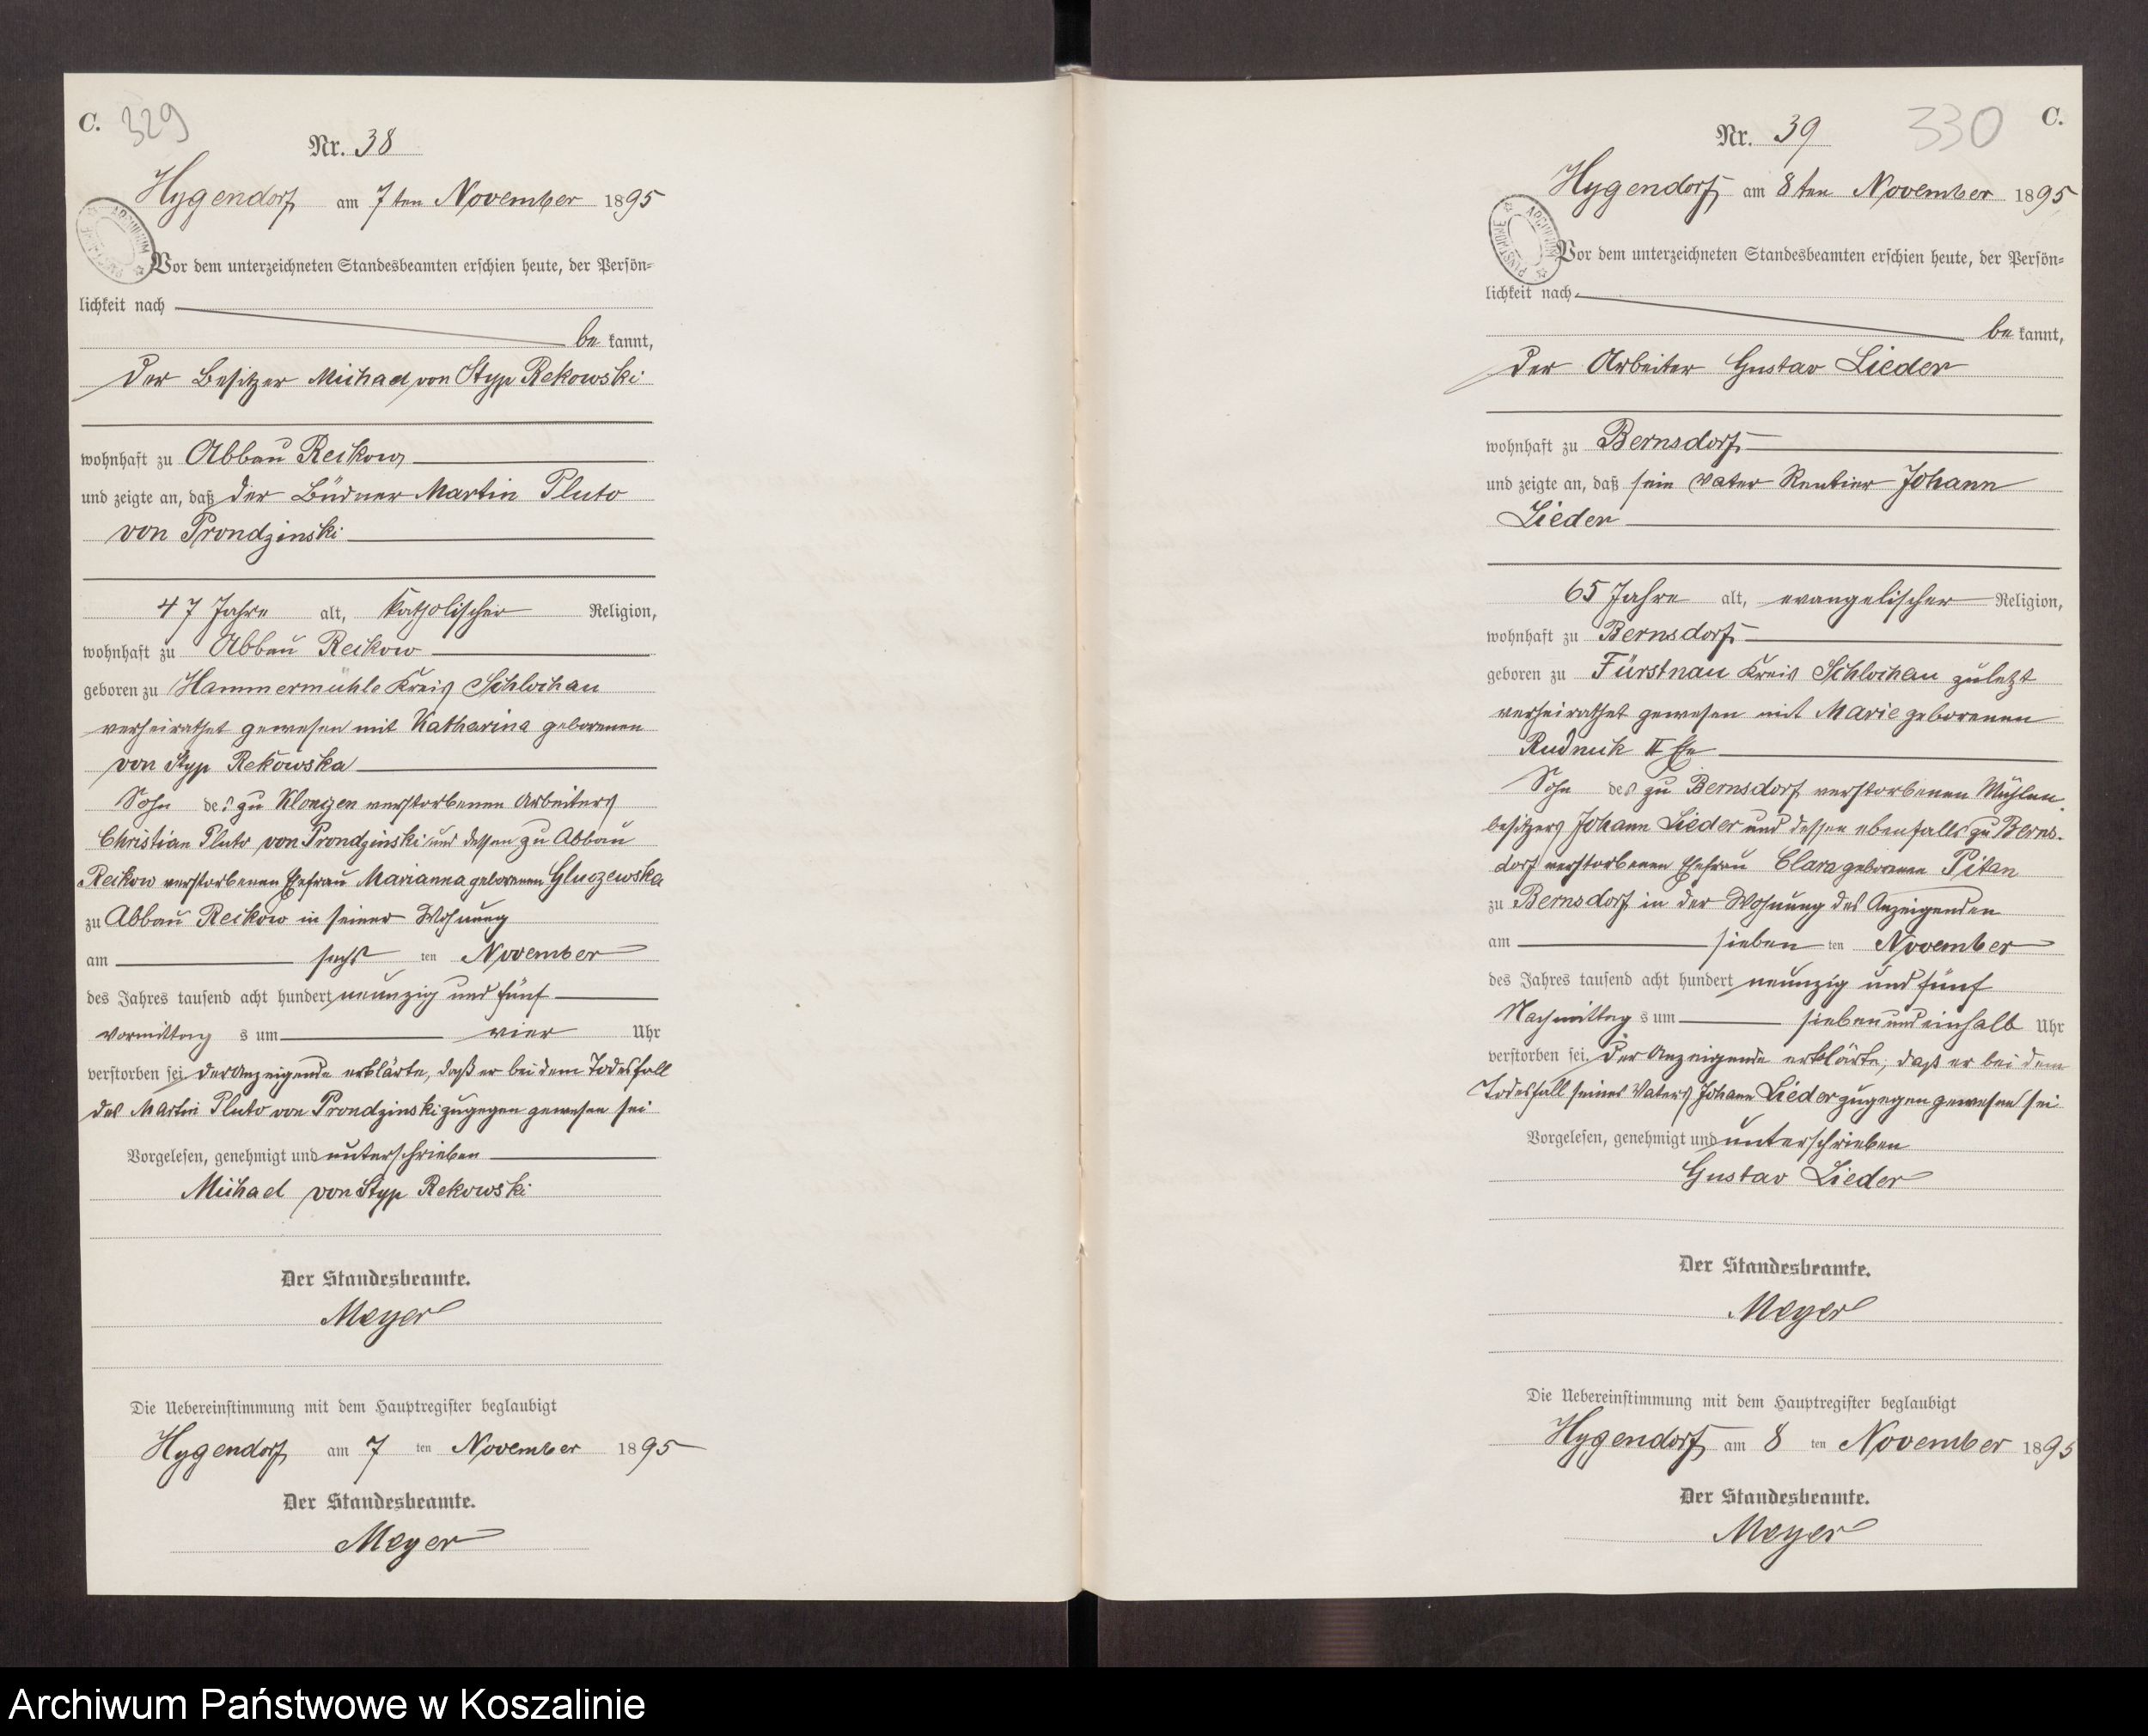 C. 329
Nr. 38
Hygendorf am 7ten November 1895
Vor dem unterzeichneten Standesbeamten erschien heute, der Persön-
lichkeit nach
be kannt,
der Besitzer Michael von Styp Rekowski
wohnhaft zu Abbau Reckow
und zeigte an, daß der Büdner Martin Pluto
von Prondzinski
47 Jahre alt, katholischer Religion,
wohnhaft zu Abbau Reckow
geboren zu Hammermühle Kreis Schlochau
verheirathet gewesen mit Katharina geborenen
von Styp Rekowska
Sohn des zu Klonczen verstorbenen Arbeiters
Christian Pluto von Prondzinski und dessen zu Abbau
Reckow verstorbenen Ehefrau Marianna geborenen Gluczewska
zu Abbau Reckow in seiner Wohnung
am sechs ten November
des Jahres tausend acht hundert neunzig und fünf
Vormittag s um vier Uhr
verstorben sei der Anzeigende erklärte, daß er bei dem Todesfall
des Martin Pluto von Prondzinski zugegen gewesen sei
Vorgelesen, genehmigt und unterschrieben
Michael von Styp Rekowski
Der Standesbeamte.
Meyer
Die Uebereinstimmung mit dem Hauptregister beglaubigt
Hygendorf am 7 ten November 1895
Der Standesbeamte.
Meyer
330 C.
Nr. 39
Hygendorf am 8ten November 1895
Vor dem unterzeichneten Standesbeamten erschien heute, der Persön-
lichkeit nach
be kannt,
der Arbeiter Gustav Lieder
wohnhaft zu Bernsdorf
und zeigte an, daß sein Vater Rentier Johann
Lieder
65 Jahre alt, evangelischer Religion,
wohnhaft zu Bernsdorf
geboren zu Fürstnau Kreis Schlochau zuletzt
verheirathet gewesen mit Marie geborenen
Rudnick II Ehe
Sohn des zu Bernsdorf verstorbenen Mühlen
besitzers Johann Lieder und dessen ebenfalls zu Berns-
dorf verstorbenen Ehefrau Clara geborenen Pitan
zu Bernsdorf in der Wohnung des Anzeigenden
am sieben ten November
des Jahres tausend acht hundert neunzig und fünf
Nachmittag s um sieben und einhalb Uhr
verstorben sei. Der Anzeigende erklärte, daß er bei dem
Todesfall seines Vaters Johann Lieder zugegen gewesen sei
Vorgelesen, genehmigt und unterschrieben
Gustav Lieder
Der Standesbeamte.
Meyer
Die Uebereinstimmung mit dem Hauptregister beglaubigt
Hygendorf am 8 ten November 1895
Der Standesbeamte.
Meyer
Archiwum Państwowe w Koszalinie